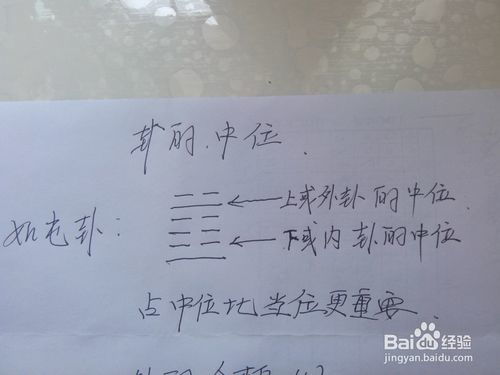 卦的中位.
上或外卦的中位.
如屯卦:
下或内卦的中位
占中位比当位更重要.
Bai 百度 经验
jingyan.baidu.com